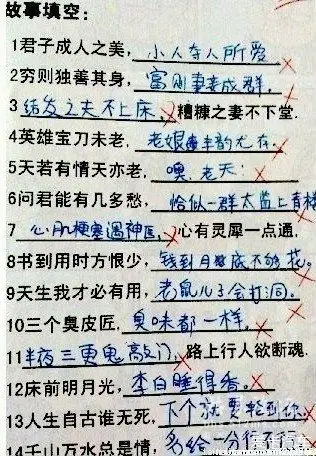 故事填空：
1君子成人之美，小人夺人所爱
2穷则独善其身，富则妻妾成群，
3结发之夫不上床，糟糠之妻不下堂.
4英雄宝刀未老，老娘丰韵尤存.
5天若有情天亦老，噢 老天
6问君能有几多愁，恰似一群太监上青楼
7心肌梗塞遇神医，心有灵犀一点通，
8书到用时方恨少，钱到月底不够花。
9天生我才必有用，老鼠儿子会打洞。
10三个臭皮匠，臭味都一样，
11半夜三更鬼敲门，路上行人欲断魂.
12床前明月光，李白睡得香。
13人生自古谁无死，下个就要轮到你.
14千山万水总是情，多给一分行不行